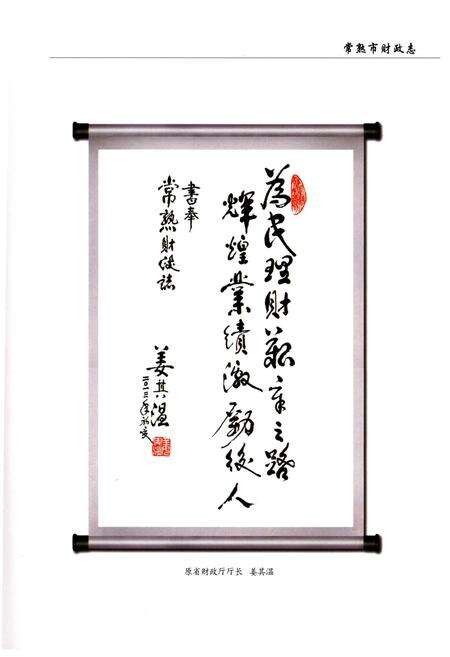 常熟市财政志
為民理財艱辛之路
輝煌業績激勵後人
書奉
常熟財政誌
姜其温
二〇一三年初夏
原省财政厅厅长 姜其温